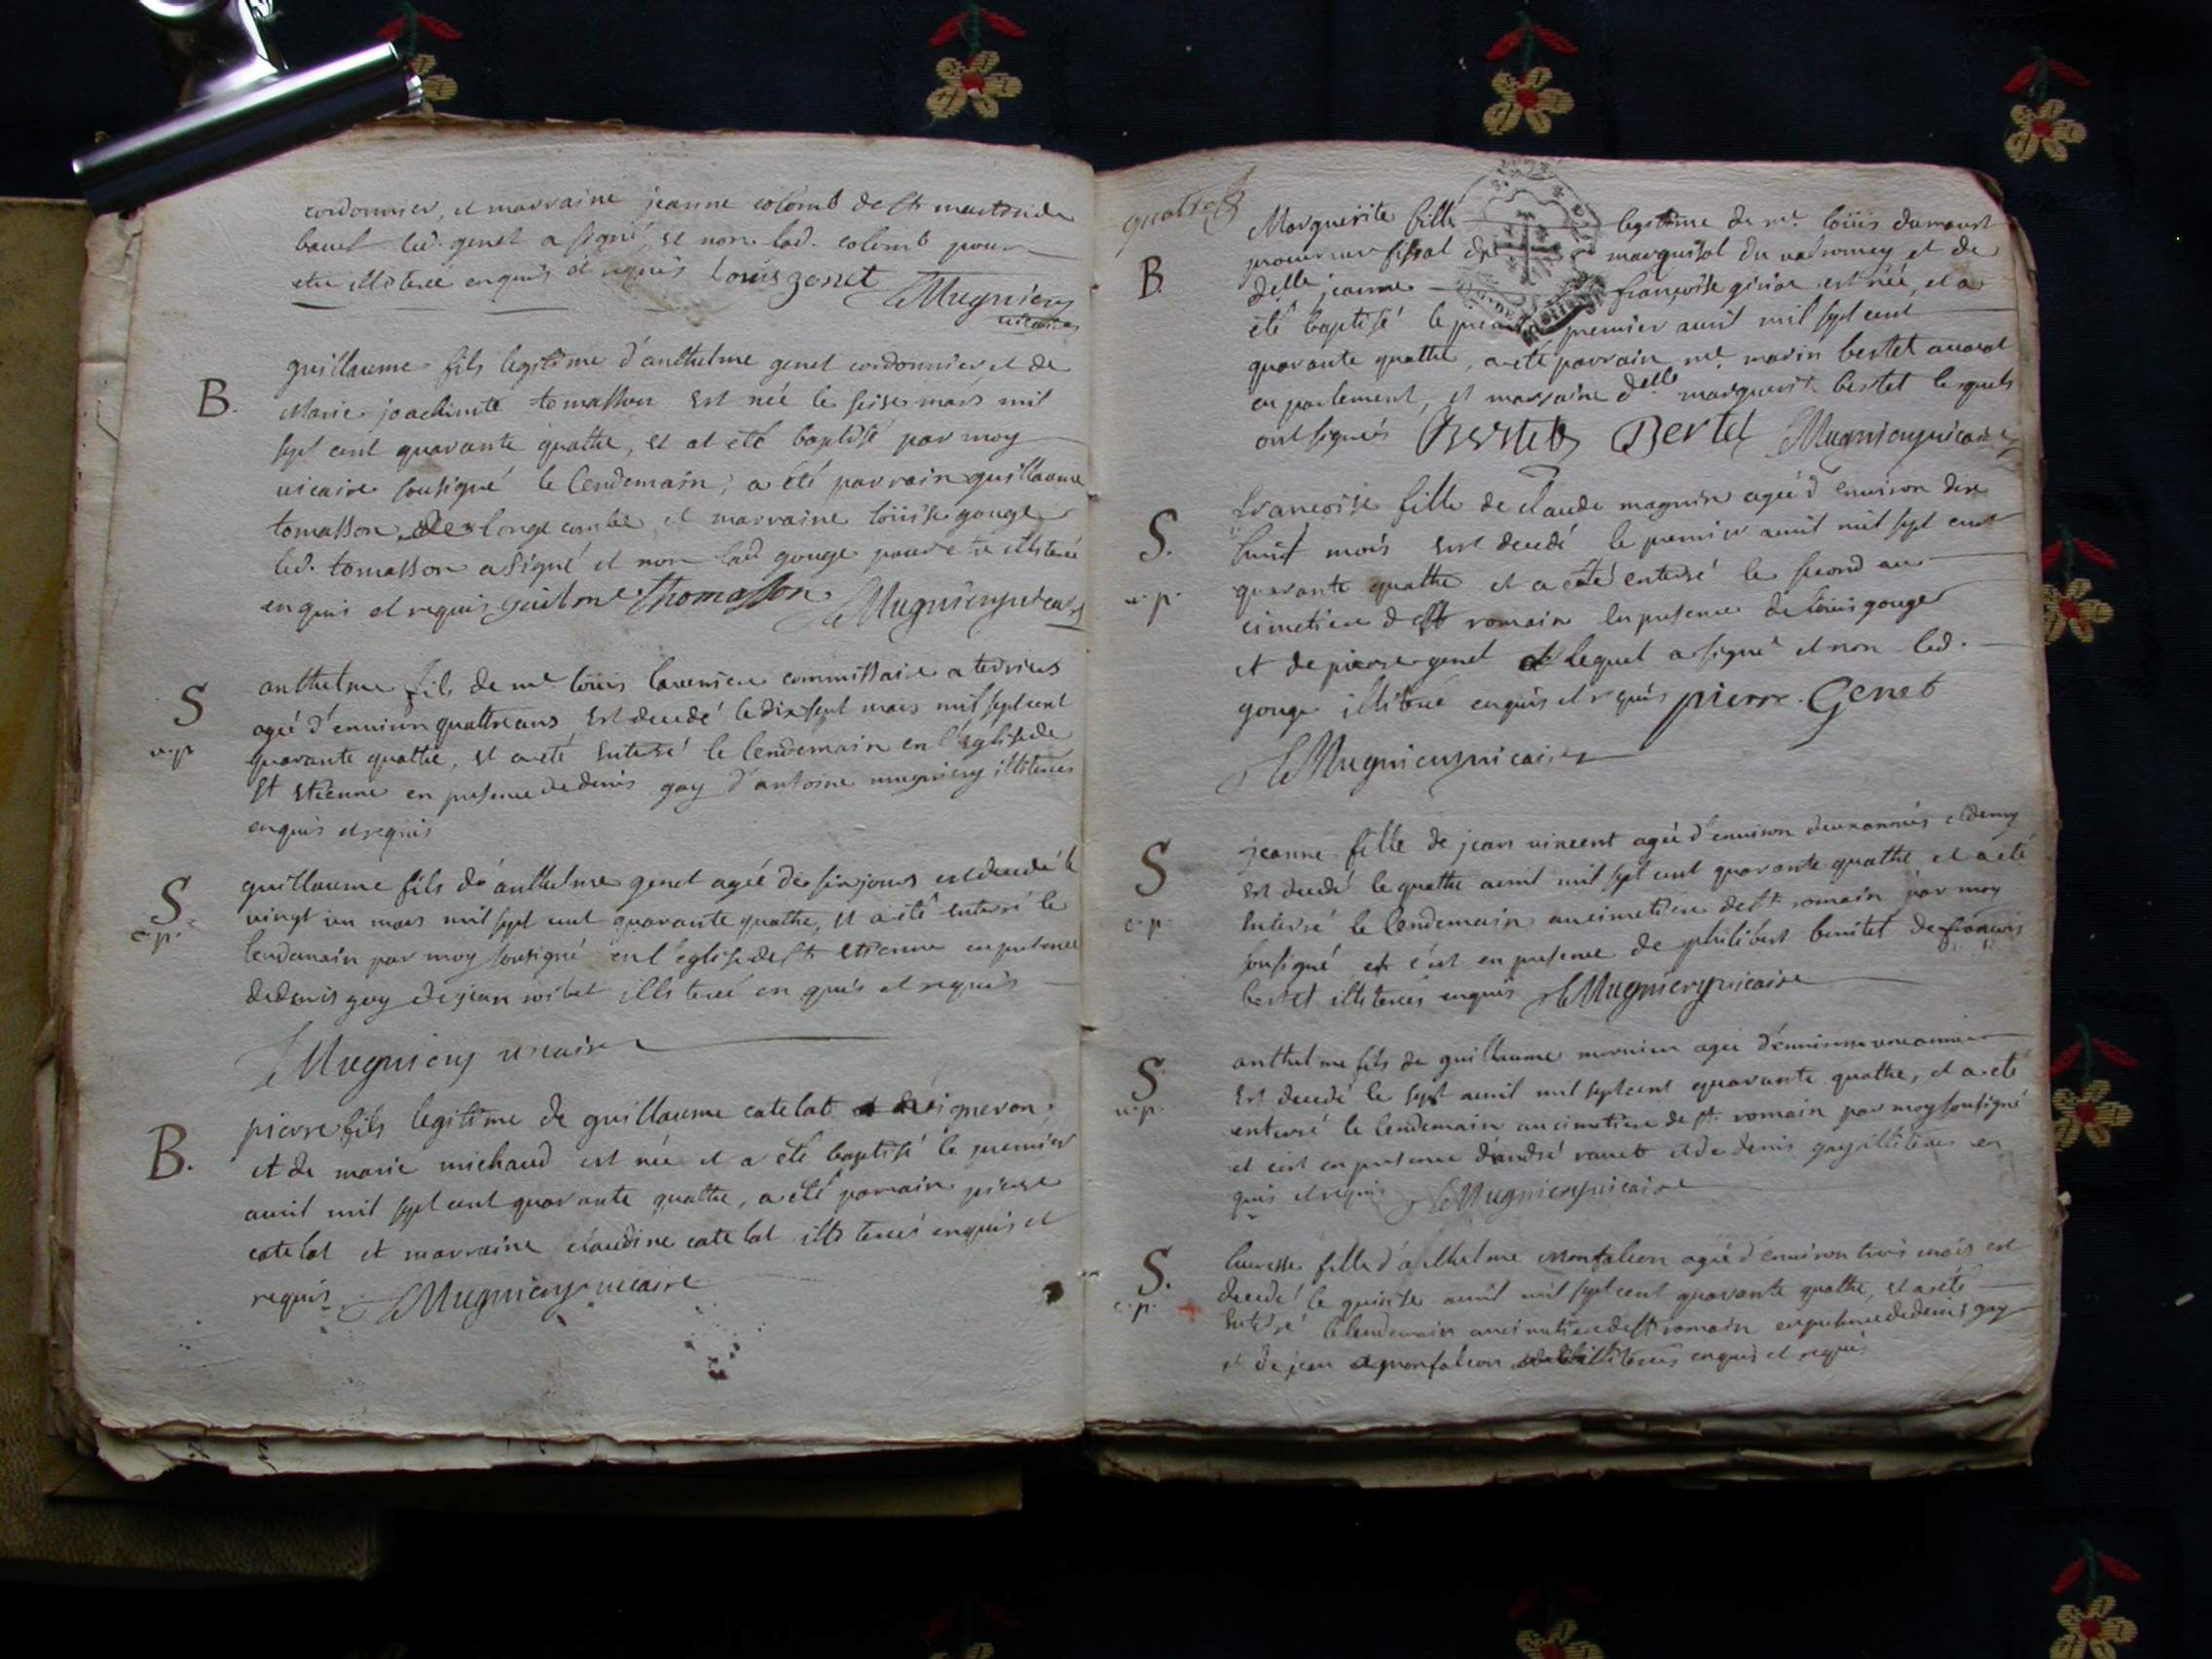 cordonnier, et marraine jeanne colomb de St martin de
bavel led. genet a signé, et non lad. colomb pour
etre illiteré enquis et requis Louis genet Mugniery
vicaire
B. guillaume fils legitime d'anthelme genet cordonnier, et de
Marie joachimte tomasson est née le seise mars mil
sept cent quarante quattre, et at eté baptisé par moy
vicaire sousigné le lendemain, a eté parrain guillaume
tomasson de longecombe et marraine loüise gouge
led. tomasson a signé et non lad gouge pour etre illiteré
enquis et requis guilme Thomasson. Mugniery vicaire
S anthelme fils de me loüis commissaire a terriers
agée d'environ quattre ans, est decedé le dix sept mars mil sept cent
quarante quattre, et a eté enterré le lendemain en l'eglise de
St etienne en presence de denis gay d'antoine mugniery illiterés
enquis et requis
S. guillaume fils d'anthelme genet agée de six jours est decedé le
vingt un mars mil sept cent quarante quattre, et a eté enterré le
lendemain par moy sousigné en l'eglise de St etienne en presence
de denis gay de jean illiteré enquis et requis
Mugniery vicaire
B. pierre fils legitime de guillaume catelat vigneron
et de marie michaud est née et a eté baptisé le premier
avril mil sept cent quarante quattre, a eté parrain pierre
catelat et marraine claudine catelat illiterés enquis et
requis Mugniery vicaire
quatre
B. Marguerite fille legitime de me loüis dumarest
procureur fiscal du marquisat du valromey et de
delle jeanne françoise est née, et a
eté baptisé le premier avril mil sept cent
quarante quattre, a eté parrain me marin bertet avocat
en parlement, et marraine delle marguerite bertet lesquels
ont signés Bertet Bertet Mugniery vicaire
S. francoise fille de claude magnin agée d'environ dix
huit mois est decedé le premier avril mil sept cent
quarante quattre et a eté enterré le second au
cimetiere de St romain en presence de loüis gouge
et de pierre genet lequel a signé et non led.
gouge illiteré enquis et requis pierre Genet
Mugniery vicaire
S jeanne fille de jean vincent agée d'environ deux années et demy
est decedé le quattre avril mil sept cent quarante quattre et a eté
enterré le lendemain au cimetiere de St romain par moy
sousigné et c'est en presence de philibert de francois
bertet illiterés enquis Mugniery vicaire
S. anthelme fils de guillaume agée d'environ une année
est decedé le sept avril mil sept cent quarante quattre, et a eté
enterré le lendemain au cimetiere de St romain par moy sousigné
et c'est en presence d'andré et de denis gay illiterés en
quis et requis Mugniery vicaire
S. lucresse fille d'anthelme monfalcon agée d'environ trois mois est
decedé le quinse avril mil sept cent quarante quattre, et a eté
enterré le lendemain au cimetiere de St romain en presence de denis gay
et de jean monfalcon illiterés enquis et requis